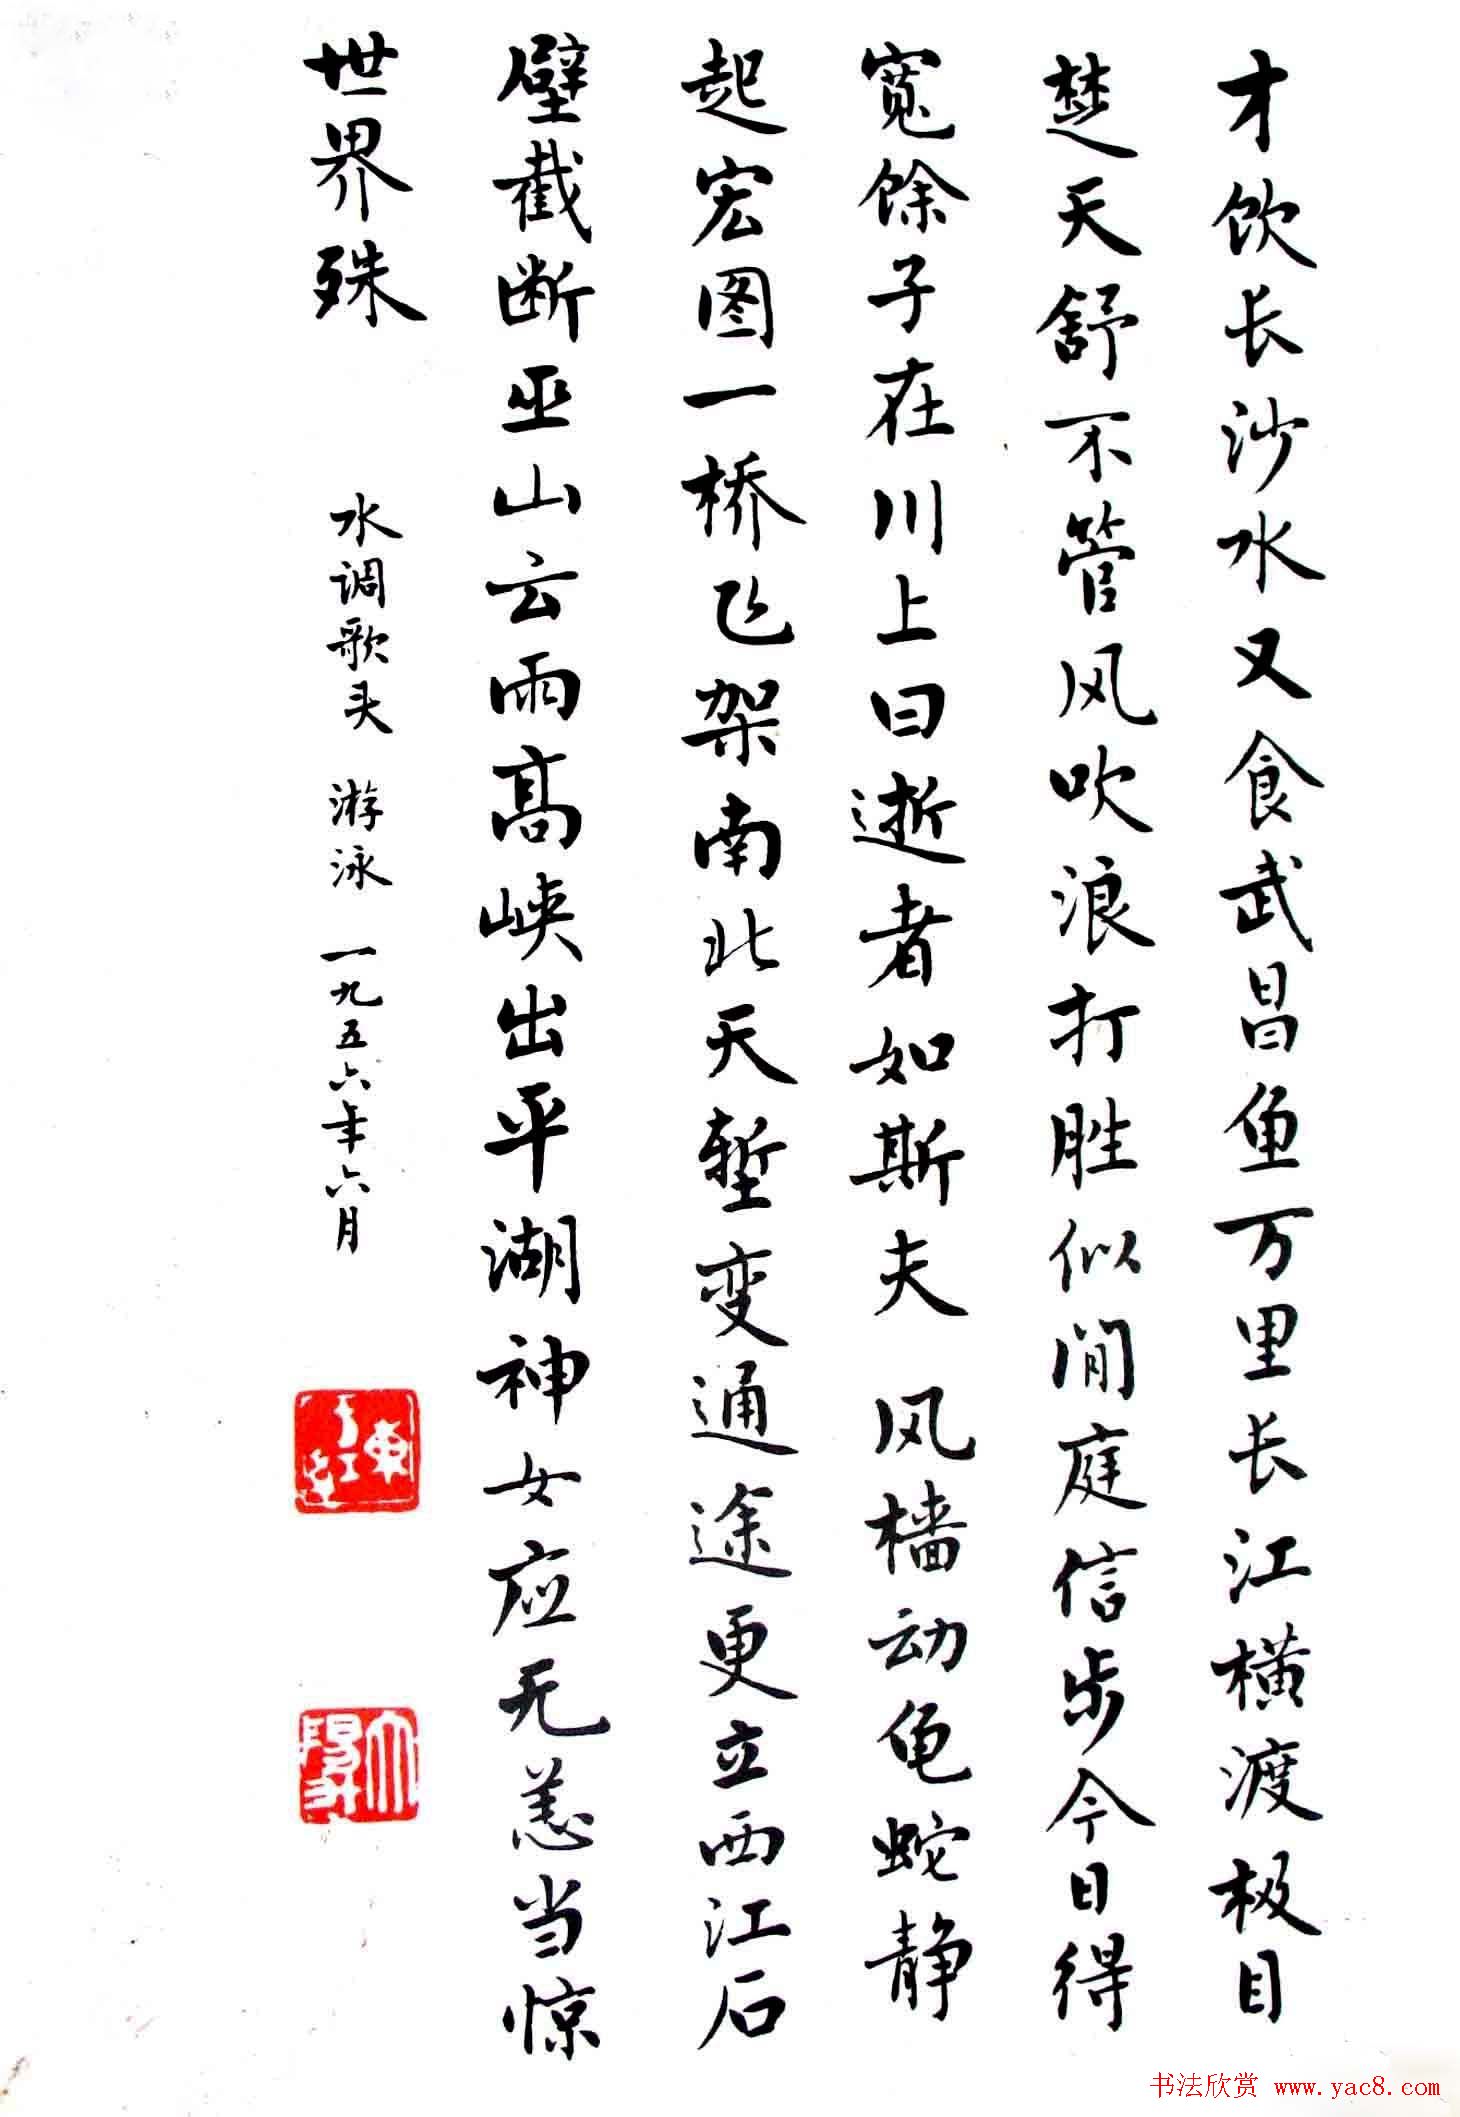 才饮长沙水又食武昌鱼万里长江横渡极目
楚天舒不管风吹浪打胜似閒庭信步今日得
寬馀子在川上曰逝者如斯夫 风樯动龟蛇静
起宏图一桥飞架南北天堑变通途更立西江石
壁截断巫山云雨高峡出平湖神女应无恙当惊
世界殊
水调歌头 游泳 一九五六年六月
书法欣赏 www.yac8.com